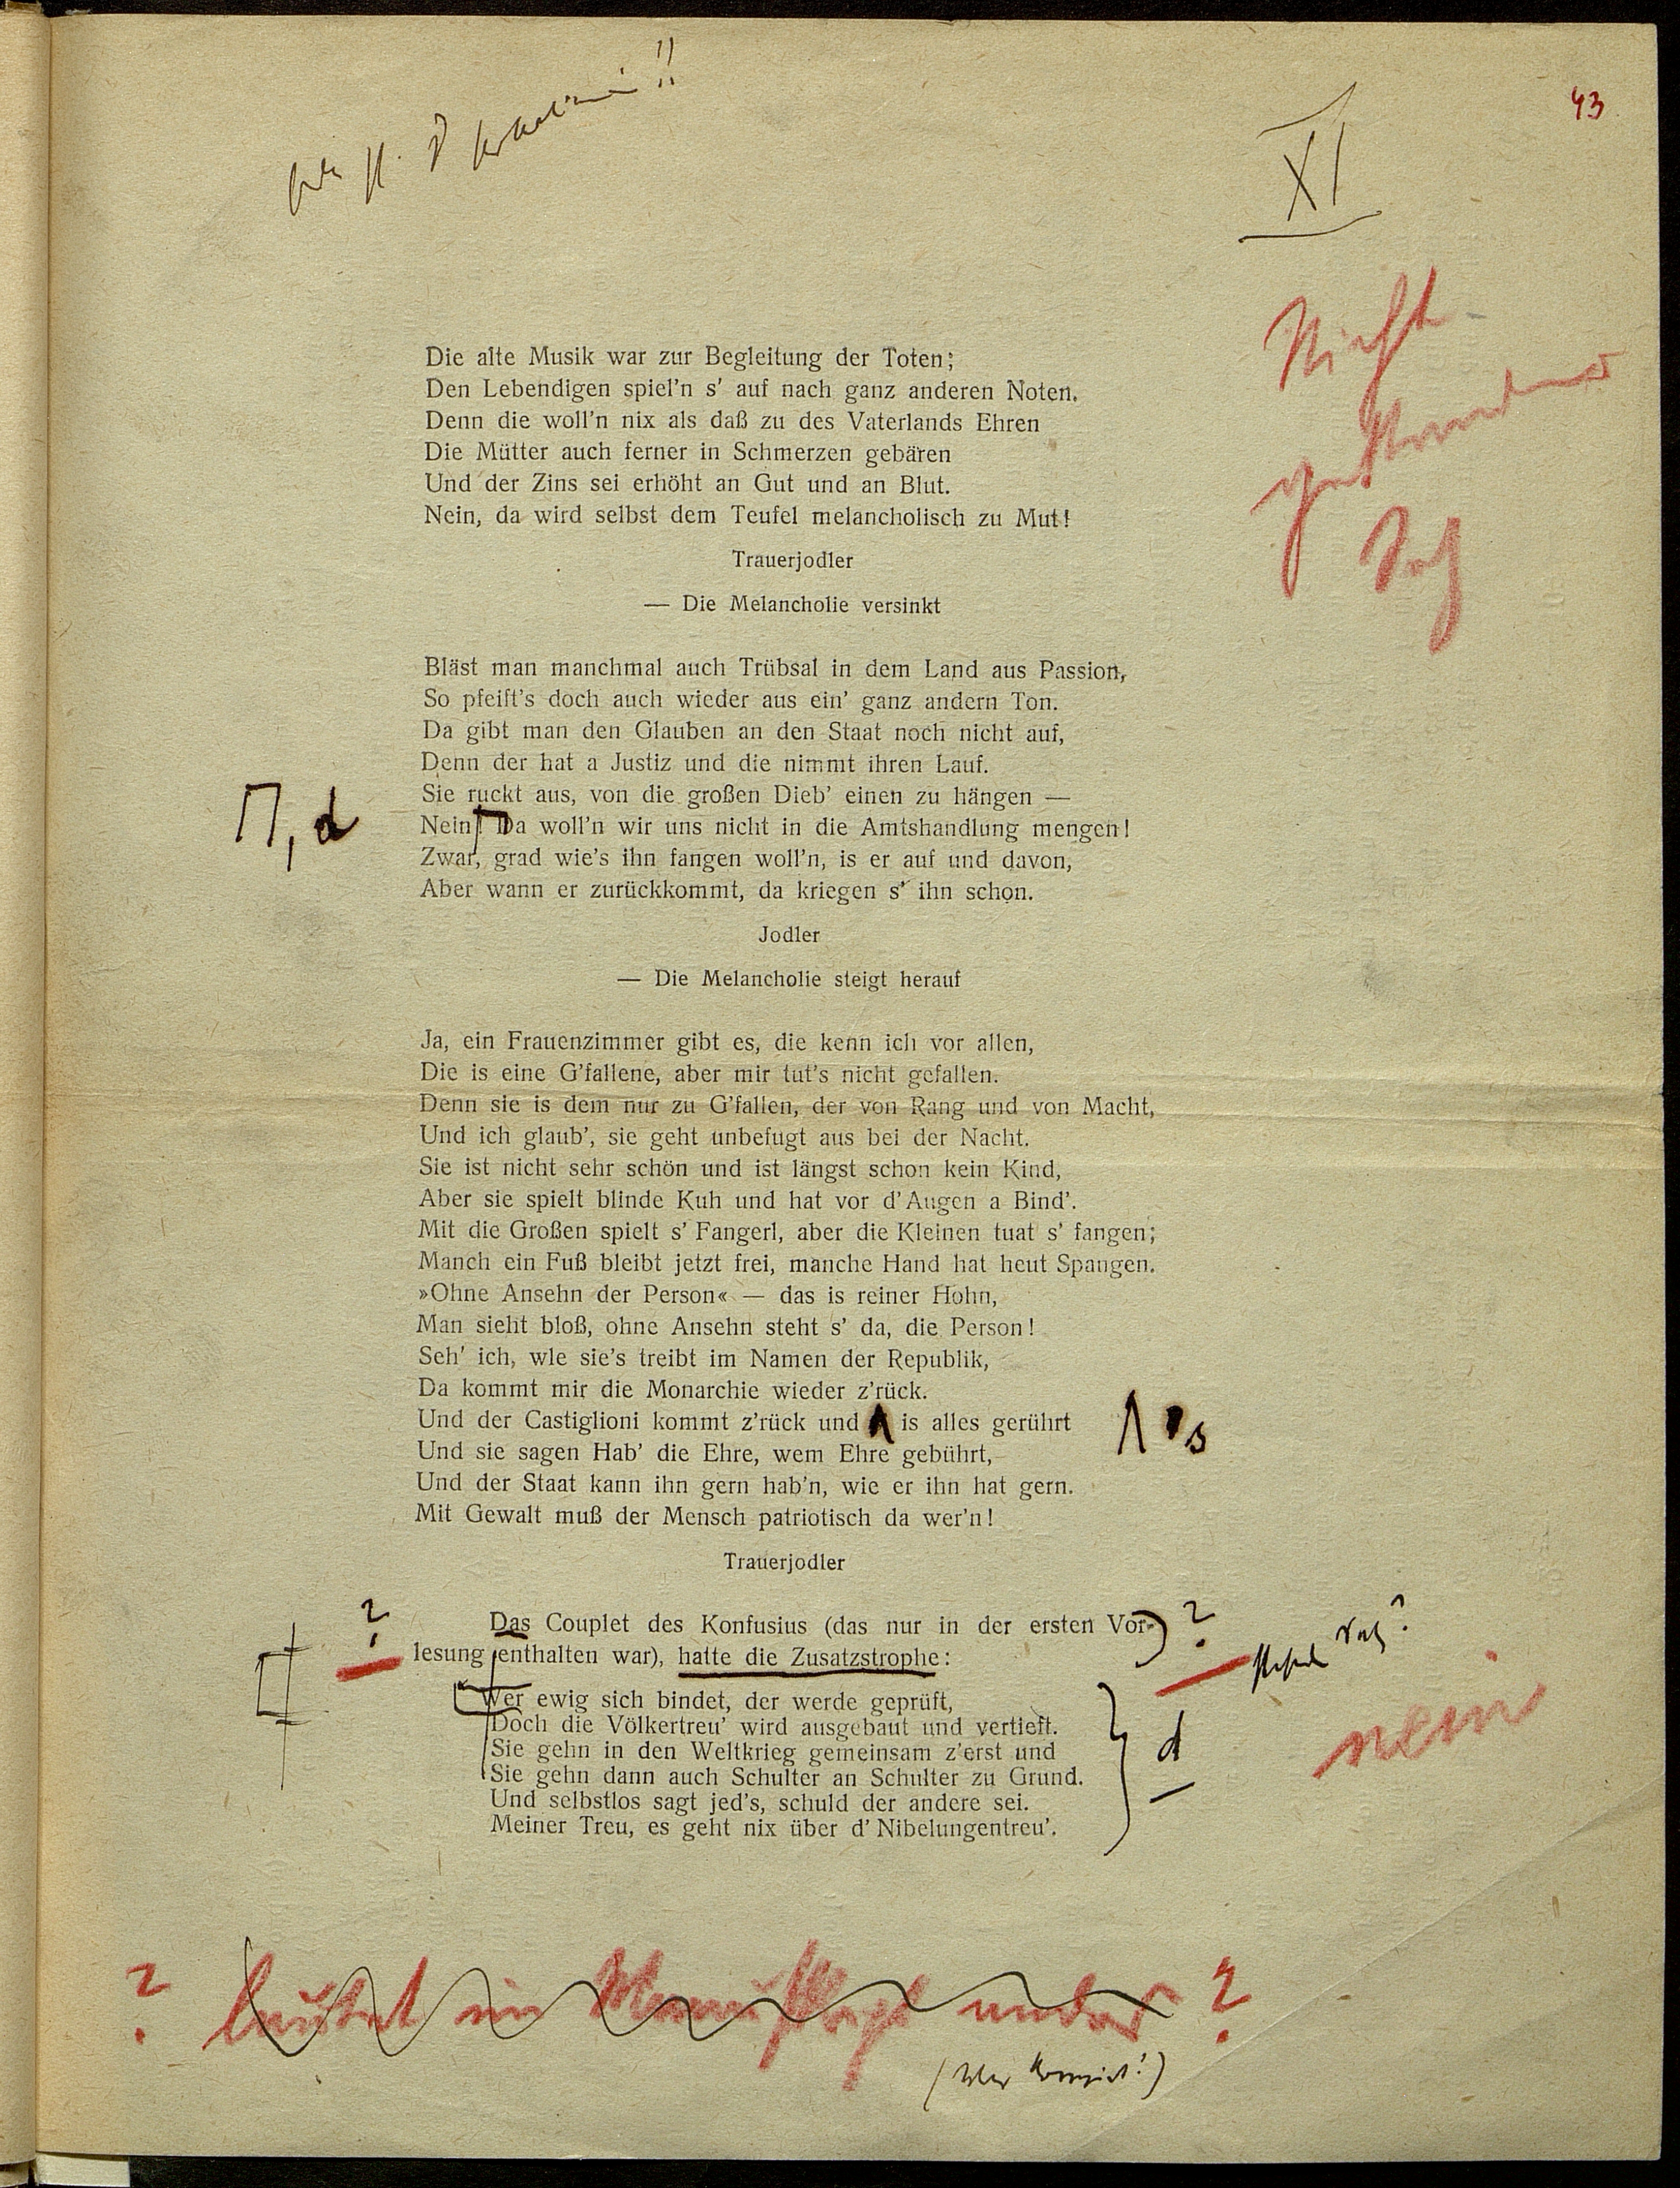 43
XI
Nicht
Satz
Die alte Musik war zur Begleitung der Toten;
Den Lebendigen spiel'n s' auf nach ganz anderen Noten.
Denn die woll'n nix als daß zu des Vaterlands Ehren
Die Mütter auch ferner in Schmerzen gebären
Und der Zins sei erhöht an Gut und an Blut.
Nein, da wird selbst dem Teufel melancholisch zu Mut!
Trauerjodler
— Die Melancholie versinkt
Bläst man manchmal auch Trübsal in dem Land aus Passion,
So pfeift's doch auch wieder aus ein' ganz andern Ton.
Da gibt man den Glauben an den Staat noch nicht auf,
Denn der hat a Justiz und die nimmt ihren Lauf.
Sie ruckt aus, von die großen Dieb' einen zu hängen —
, d
Nein! Da woll'n wir uns nicht in die Amtshandlung mengen!
Zwar, grad wie's ihn fangen woll'n, is er auf und davon,
Aber wann er zurückkommt, da kriegen s' ihn schon.
Jodler
— Die Melancholie steigt herauf
Ja, ein Frauenzimmer gibt es, die kenn ich vor allen,
Die is eine G'fallene, aber mir tut's nicht gefallen.
Denn sie is dem nur zu G'fallen, der von Rang und von Macht,
Und ich glaub', sie geht unbefugt aus bei der Nacht.
Sie ist nicht sehr schön und ist längst schon kein Kind,
Aber sie spielt blinde Kuh und hat vor d' Augen a Bind'.
Mit die Großen spielt s' Fangerl, aber die Kleinen tuat s' fangen;
Manch ein Fuß bleibt jetzt frei, manche Hand hat heut Spangen.
»Ohne Ansehn der Person« — das is reiner Hohn,
Man sieht bloß, ohne Ansehn steht s' da, die Person!
Seh' ich, wie sie's treibt im Namen der Republik,
Da kommt mir die Monarchie wieder z'rück.
Und der Castiglioni kommt z'rück und is alles gerührt
's
Und sie sagen Hab' die Ehre, wem Ehre gebührt,
Und der Staat kann ihn gern hab'n, wie er ihn hat gern.
Mit Gewalt muß der Mensch patriotisch da wer'n!
Trauerjodler
?
Das Couplet des Konfusius (das nur in der ersten Vor-
?
lesung enthalten war), hatte die Zusatzstrophe:
Wer ewig sich bindet, der werde geprüft,
Doch die Völkertreu' wird ausgebaut und vertieft.
Sie gehn in den Weltkrieg gemeinsam z'erst und
d
nein
Sie gehn dann auch Schulter an Schulter zu Grund.
Und selbstlos sagt jed's, schuld der andere sei.
Meiner Treu, es geht nix über d' Nibelungentreu'.
? lautet im ?